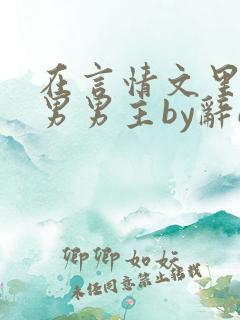 在言情文里
男男主by辞
卿卿如妘
未经同意禁止转载